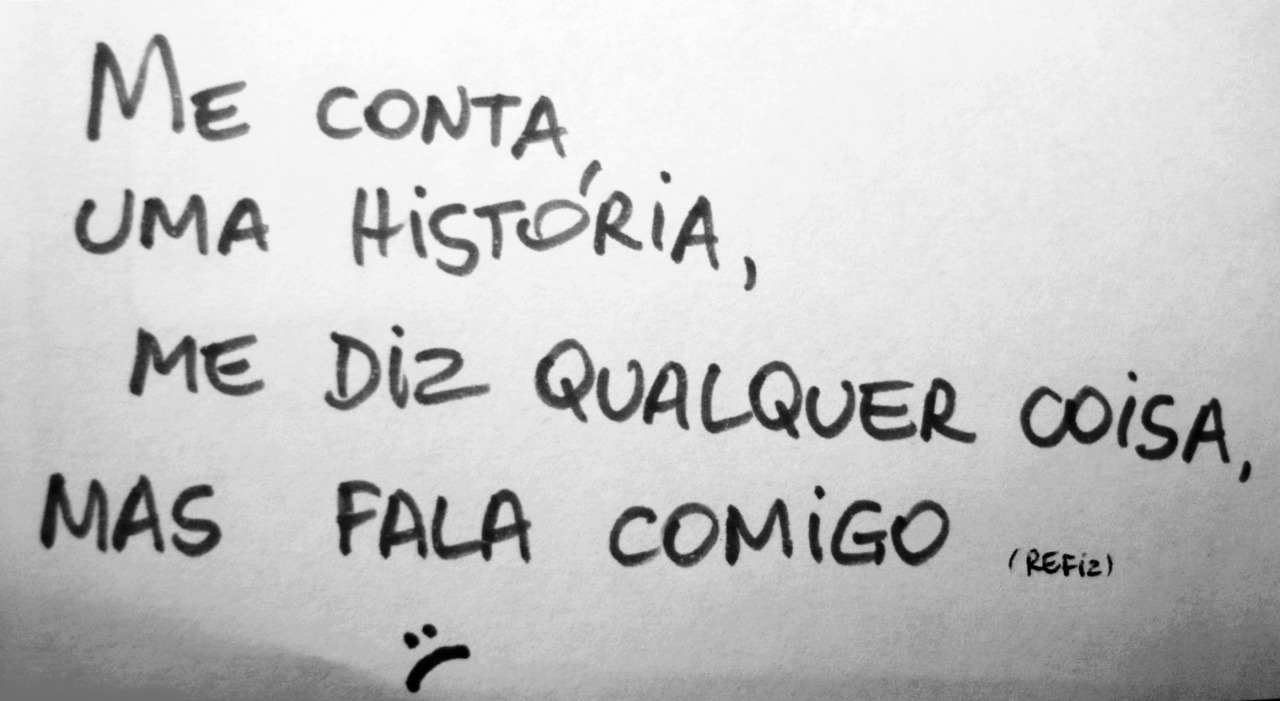 ME CONTA,
UMA HISTÓRIA,
ME DIZ QUALQUER COISA,
MAS FALA COMIGO (REFIZ)